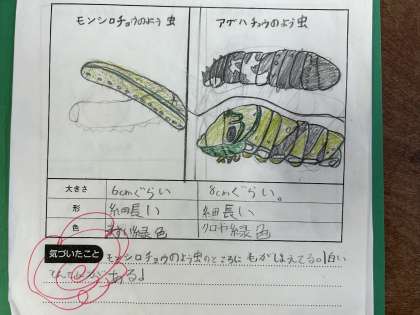 モンシロチョウのよう虫 アゲハチョウのよう虫
大きさ 6cmぐらい 8cmぐらい。
形 細長い 細長い
色 うすい緑色 クロや緑色
気づいたこと モンシロチョウのよう虫のところに もがはえてる。白い
てんてんが、ある